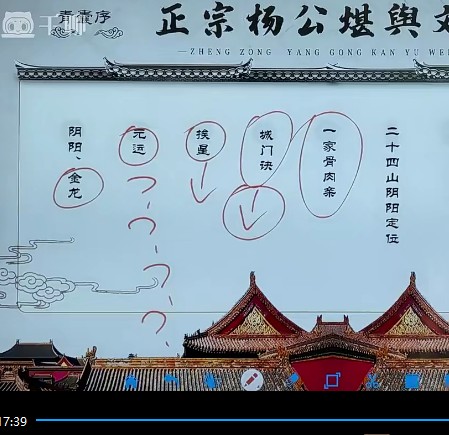 千聊
青囊序
正宗杨公堪舆
ZHENG ZONG YANG GONG KAN YU WE
二十四山阴阳定位
一家骨肉亲
城门诀
挨星
元运
阴阳、金龙
17:39